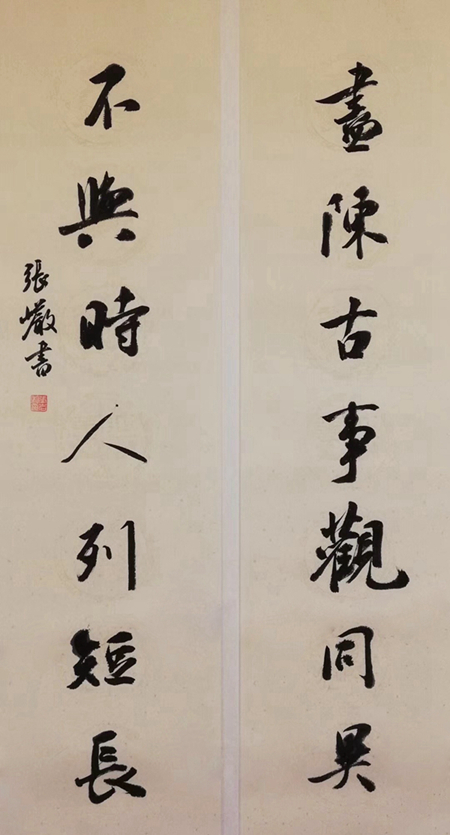 盡陳古事觀同異
不與時人列短長
張巖書